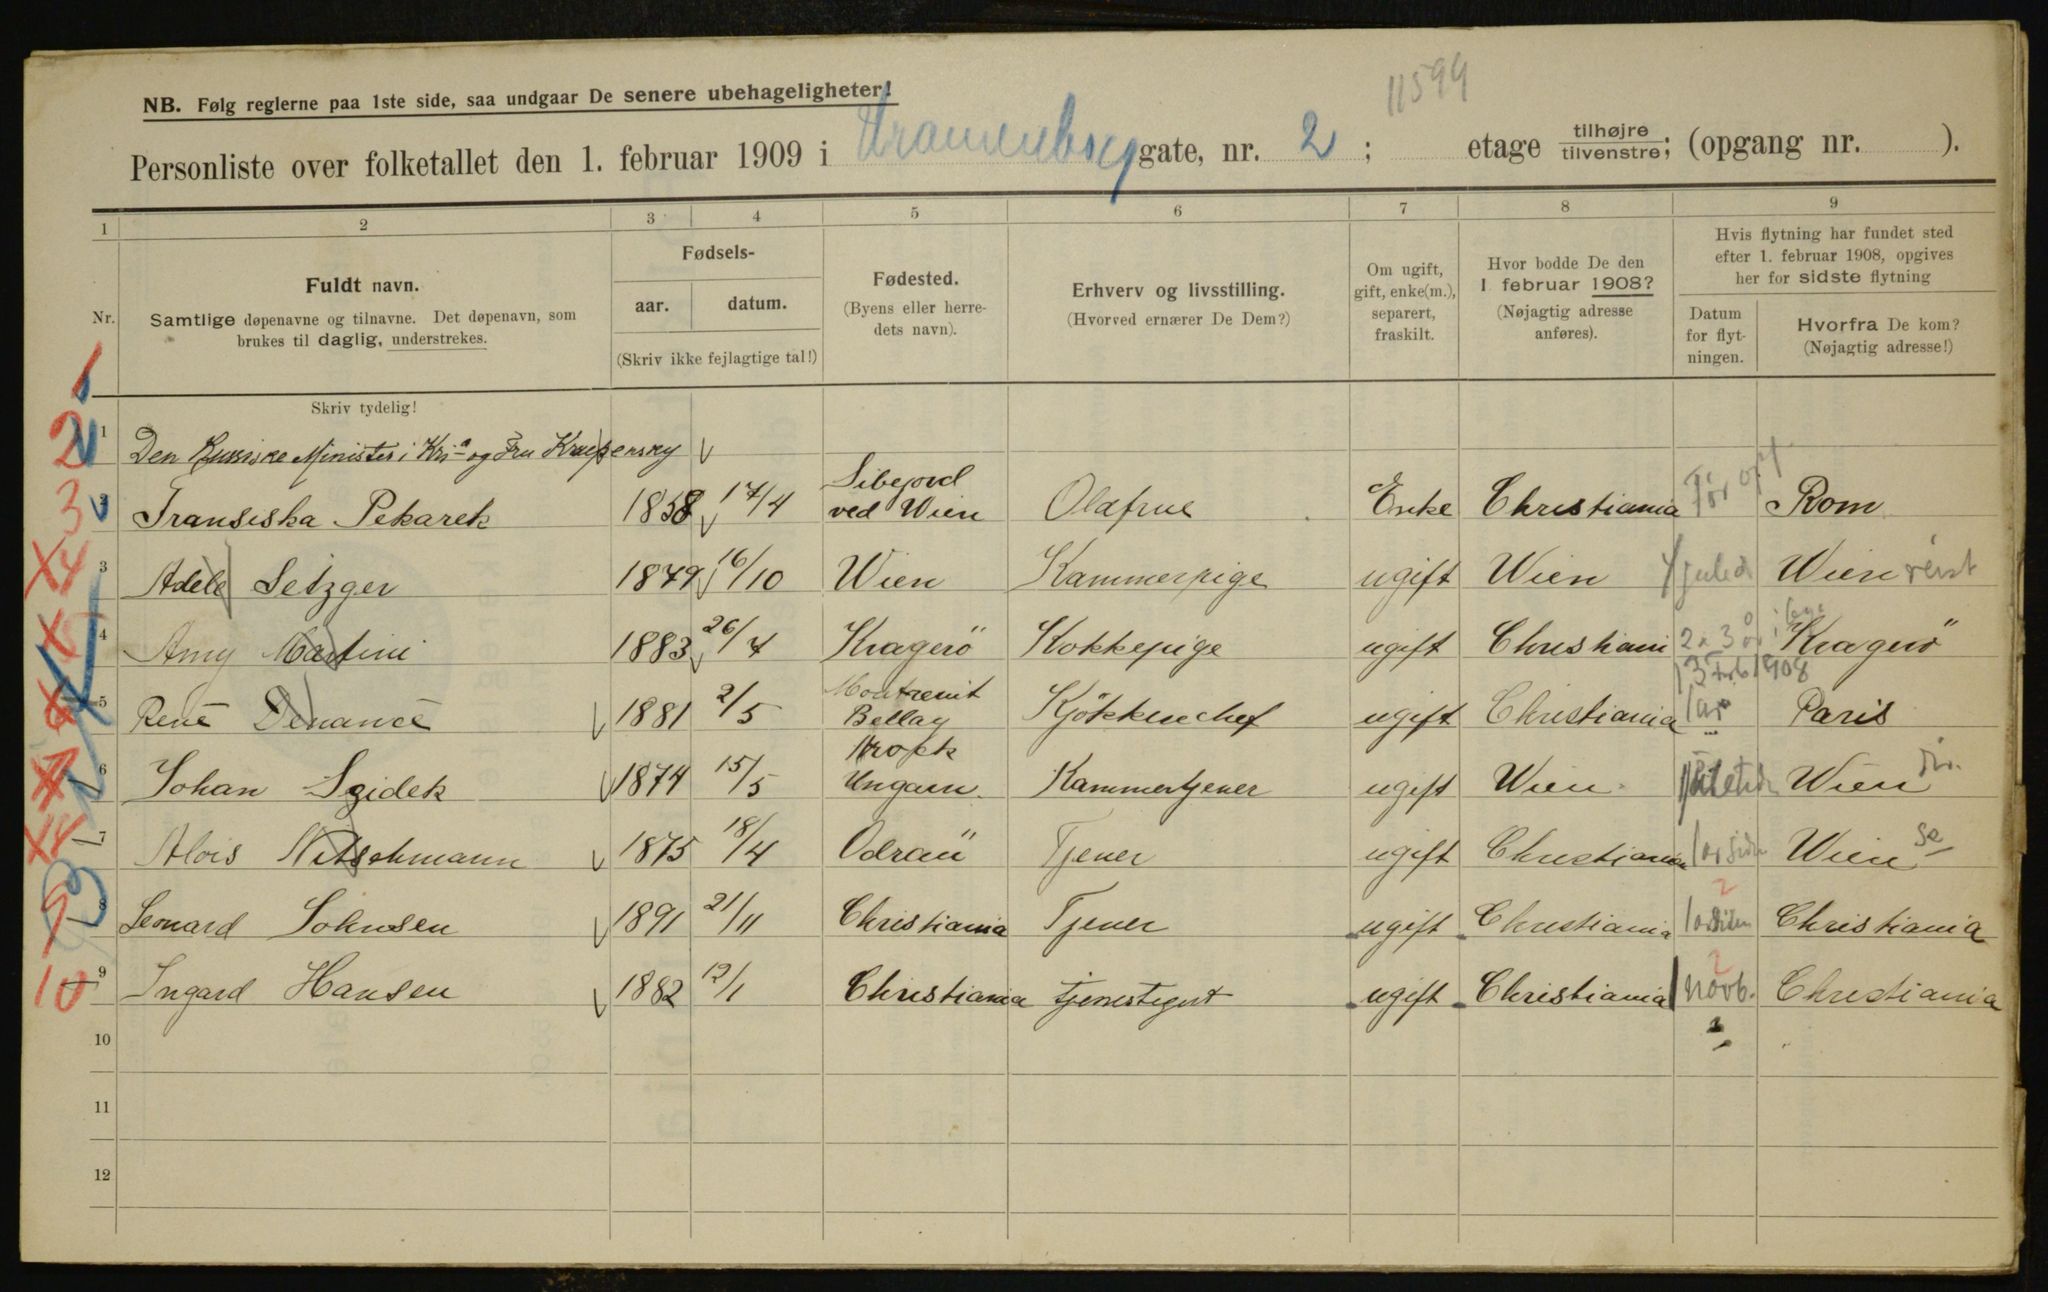 11599
NB. Følg reglerne paa 1ste side, saa undgaar De senere ubehageligheter!
Personliste over folketallet den 1. februar 1909 i Uranienborg gate, nr. 2 ; etage tilhøjre tilvenstre; (opgang nr. ).
1 2 3 4 5 6 7 8 9
Nr.
Fuldt navn.
Samtlige døpenavne og tilnavne. Det døpenavn, som
brukes til daglig, understrekes.
Skriv tydelig!
Fødsels-
aar. datum.
(Skriv ikke fejlagtige tal!)
Fødested.
(Byens eller herre-
dets navn).
Erhverv og livsstilling.
(Hvorved ernærer De Dem?)
Om ugift,
gift, enke(m.),
separert,
fraskilt.
Hvor bodde De den
1 februar 1908?
(Nøjagtig adresse
anføres).
Hvis flytning har fundet sted
efter 1. februar 1908, opgives
her for sidste flytning
Datum
for flyt-
ningen.
Hvorfra De kom?
(Nøjagtig adresse!)
1
1 Den Russiske Minister i Kria og Fru Krupensky
2
2 Fransiska Pekarek 1858 17/4 ved Wien Olafrue Enke Christiania Rom
3
3 Adele Setzger 1879 16/10 Wien Kammerpige ugift Wien Wien reist
X4
4 Amy Martini 1883 26/4 Kragerö Kokkepige ugift Christiani Kragerö
5 René Denancé 1881 2/5 Montreuit Bellay Kjökkenchef ugift Christiania 13 Feb 1908 1 ar Paris
6 Johan Szidek 1874 15/5 Ungarn. Kammertjener ugift Wien Wien
7 Alois Nitschmann 1875 18/4 Odraü Tjener ugift Christiania 1 ar siden Wien
8 Leonard Johnsen 1891 21/11 Christiania Tjener ugift Christiania 1 ar siden Christiania
9
9 Ingard Hansen 1882 12/1 Christiania tjenestegut ugift Christiania 1 novb. Christiania
10
10
11
12